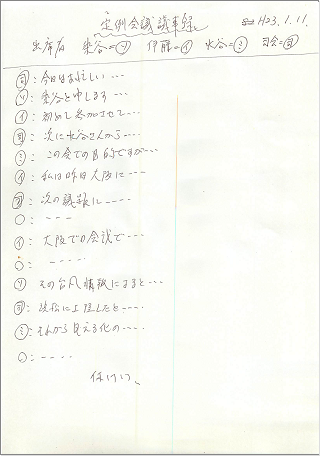 定例会議議事録
H23.1.11.
出席者 染谷=ソ 伊藤=イ 水谷=ミ 司会=司
司:今日はお忙しい…
ソ:染谷と申します…
イ:初めて参加させて…
司:次に水谷さんから…
ミ:この会での目的ですが…
イ:私は昨日大阪に----
司:次の議題に----
〇:----
イ:大阪での会議で…
〇:-----
ソ:その台風情報によると…
司:に上陸したと….
ミ:それから見える化の….
〇:----